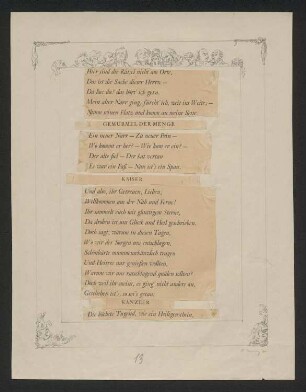 Hier sind die Rätsel nicht am Orte,
Das ist die Sache dieser Herrn —
Da löse du! das hört' ich gern.
Mein alter Narr ging, fürcht' ich, weit ins Weite;
Nimm seinen Platz und komm an meine Seite.
GEMURMEL DER MENGE
Ein neuer Narr — Zu neuer Pein —
Wo kommt er her? — Wie kam er ein? —
Der alte fiel — Der hat vertan —
Es war ein Faß — Nun ist's ein Span.
KAISER
Und also, ihr Getreuen, Lieben,
Willkommen aus der Näh und Ferne!
Ihr sammelt euch mit günstigem Sterne,
Da droben ist uns Glück und Heil geschrieben.
Doch sagt, warum in diesen Tagen,
Wo wir der Sorgen uns entschlagen,
Schönbärte mummenschänzlich tragen
Und Heitres nur genießen wollten,
Warum wir uns ratschlagend quälen sollten?
Doch weil ihr meint, es ging' nicht anders an,
Geschehen ist's, so sei's getan.
KANZLER
Die höchste Tugend, wie ein Heiligenschein,
13